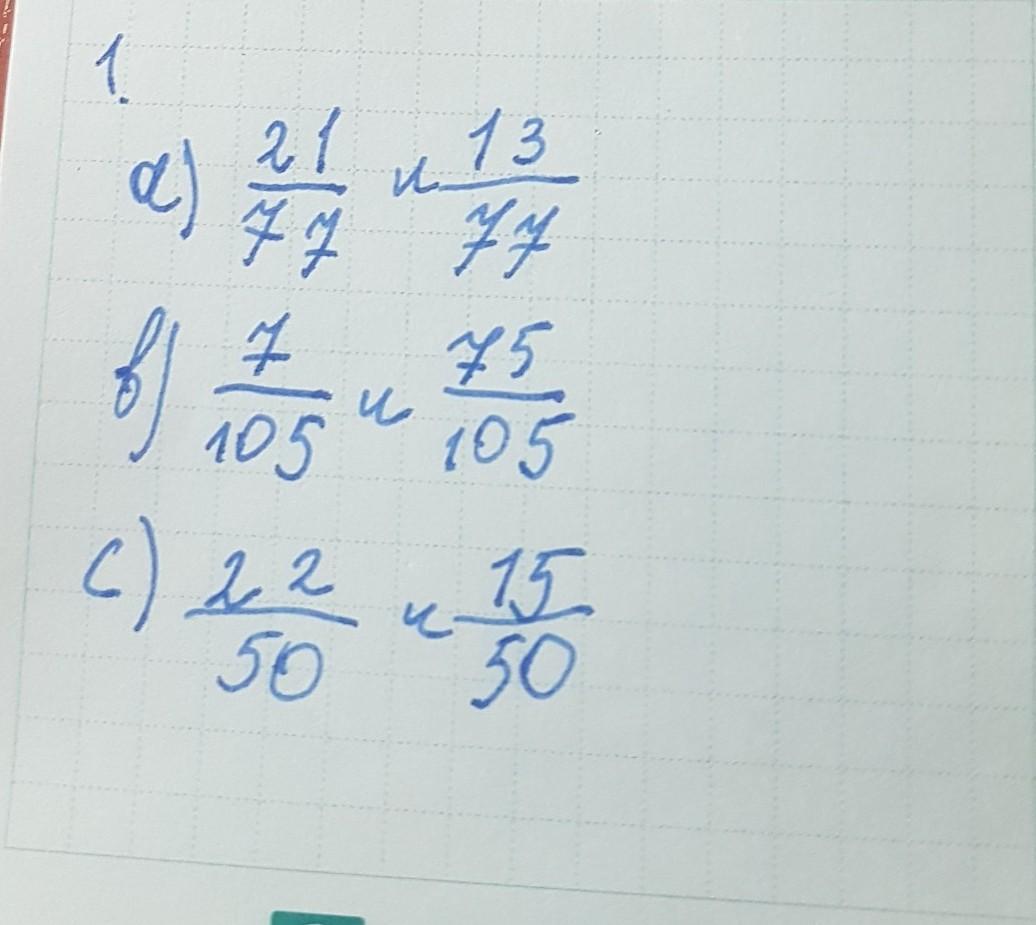 1.
a) 21/77 и 13/77
b) 7/105 и 75/105
c) 22/50 и 15/50